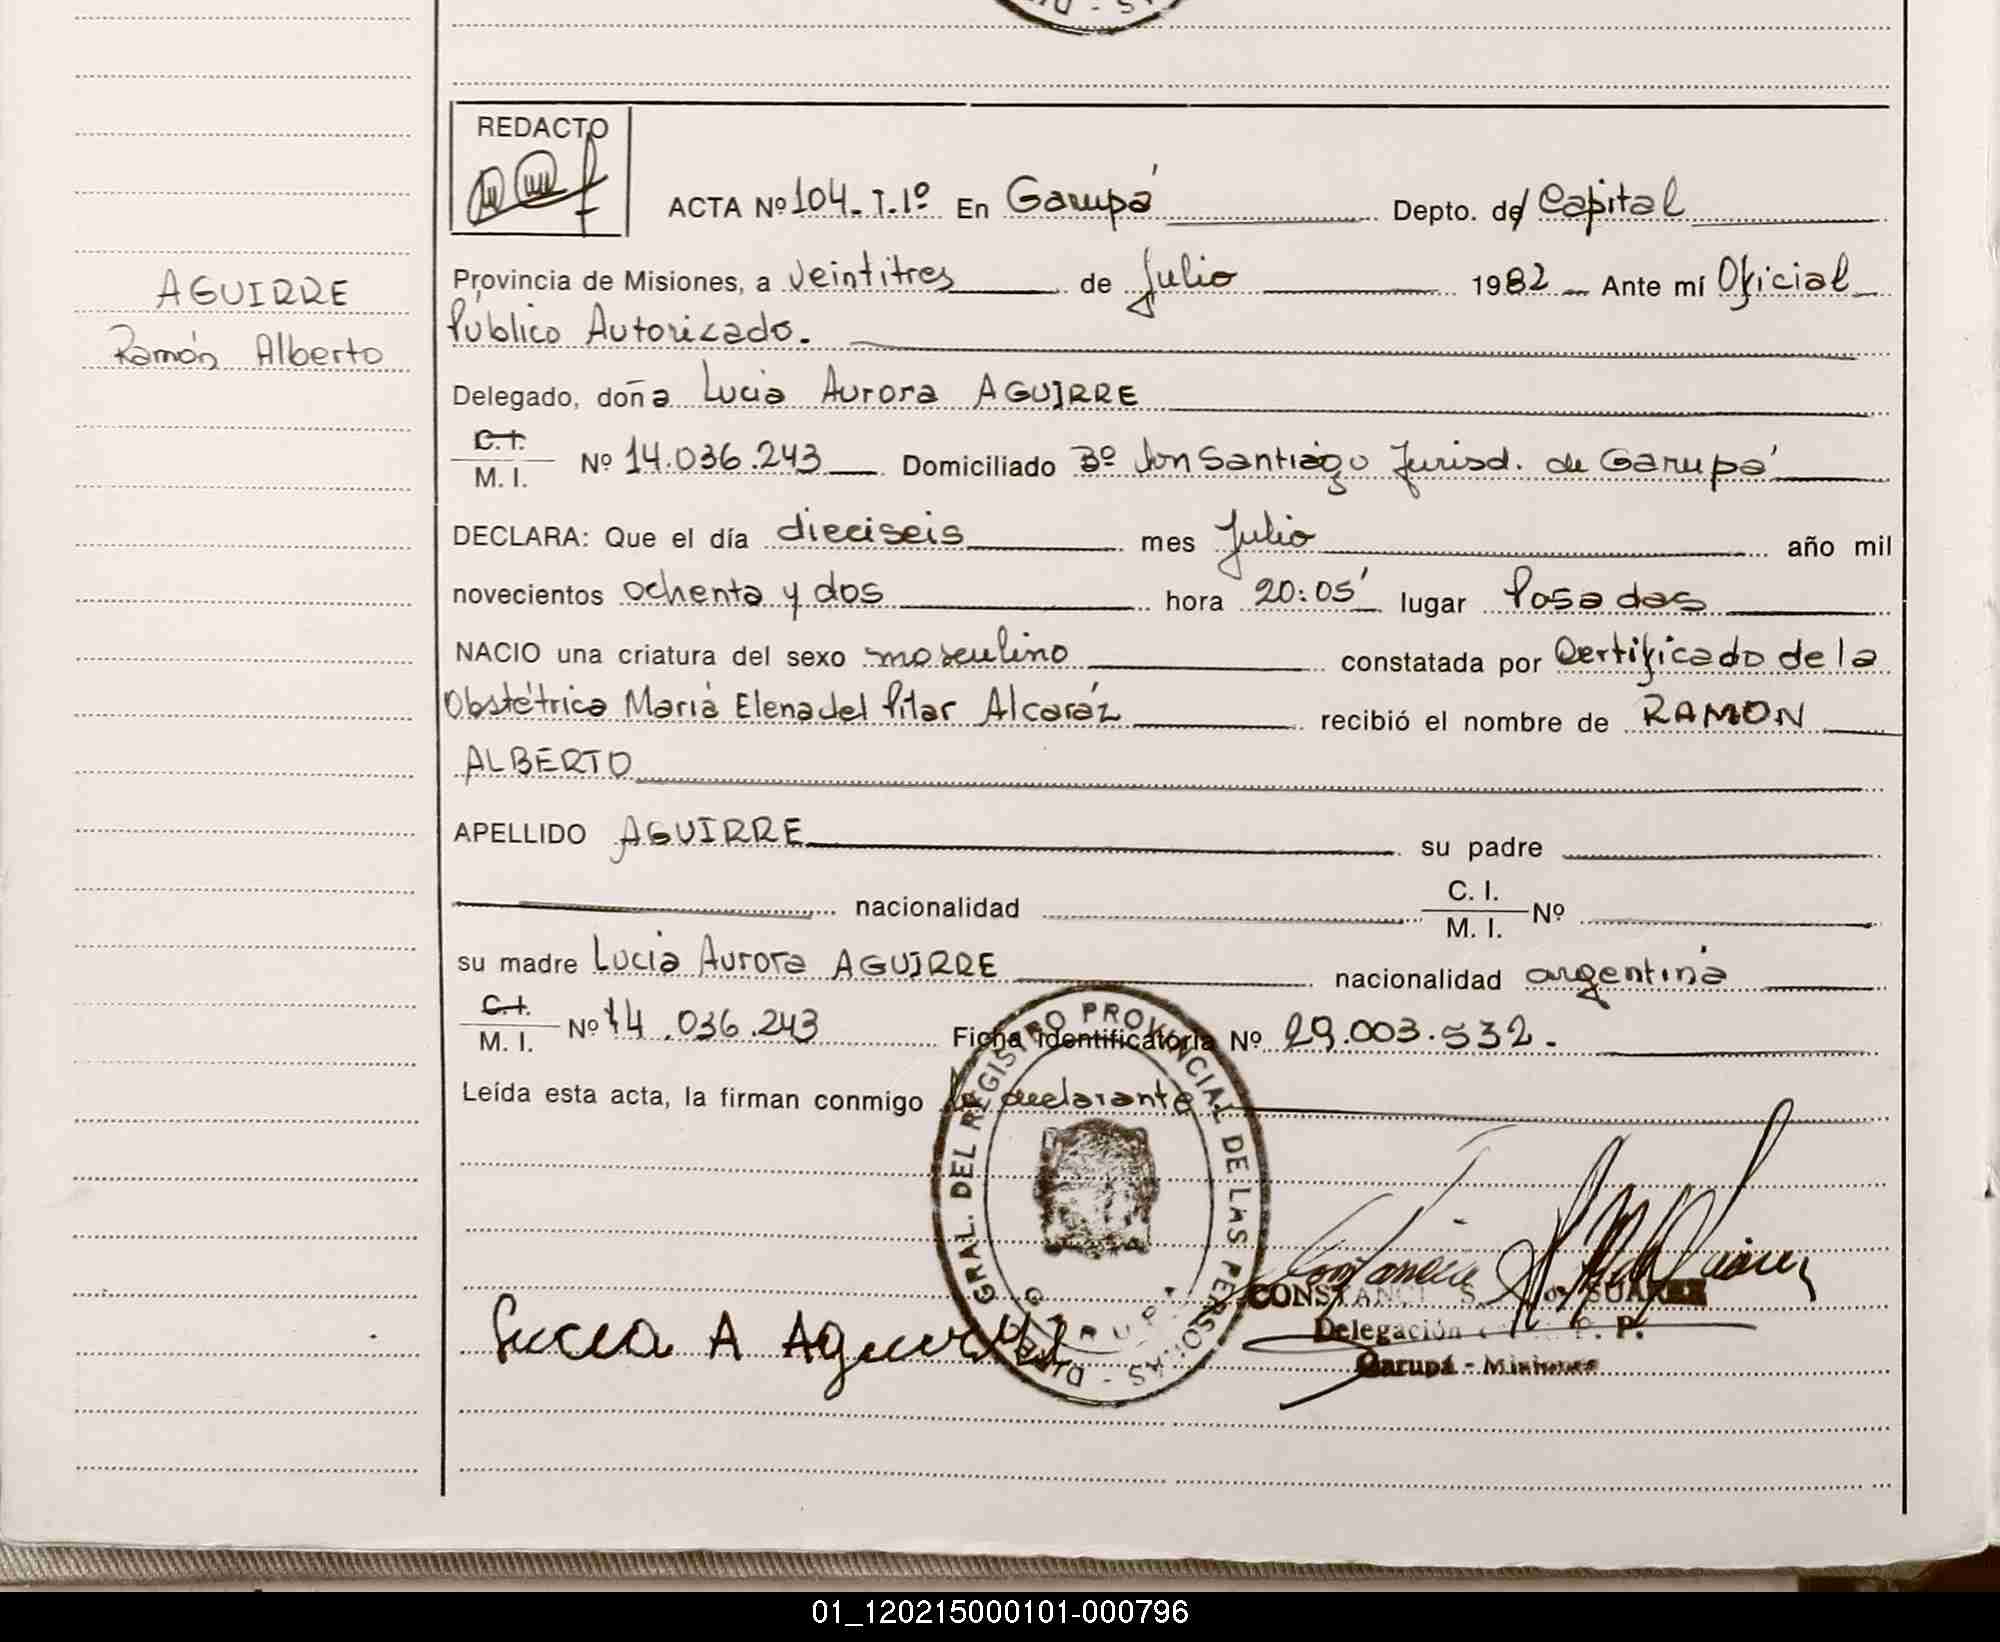 REDACTO
ACTA Nº 104- T.1º En Garupá Depto. de Capital
AGUIRRE
Ramón Alberto
Provincia de Misiones, a veintitres de Julio 1982 Ante mí Oficial
Público Autorizado.
Delegado, doña Lucia Aurora AGUIRRE
C.I.
M. I. Nº 14.036.243 Domiciliado Bº Santiago Jurisd. de Garupá
DECLARA: Que el día dieciseis mes Julio año mil
novecientos ochenta y dos hora 20:05' lugar Posadas
NACIO una criatura del sexo masculino constatada por Certificado de la
Obstétrica María Elena del Pilar Alcaráz recibió el nombre de RAMON
ALBERTO
APELLIDO AGUIRRE su padre
nacionalidad C. I.
M. I. Nº
su madre Lucia Aurora AGUIRRE nacionalidad argentina
C.I.
M. I. Nº 14.036.243 Ficha identificatoria Nº 29.003.532.
Leída esta acta, la firman conmigo la declarante
DIR. GRAL. DEL REGISTRO PROVINCIAL DE LAS PERSONAS
GARUPA
Lucia A Aguirre
SUAREZ
Delegación R. P. P.
Garupá - Misiones
01_120215000101-000796